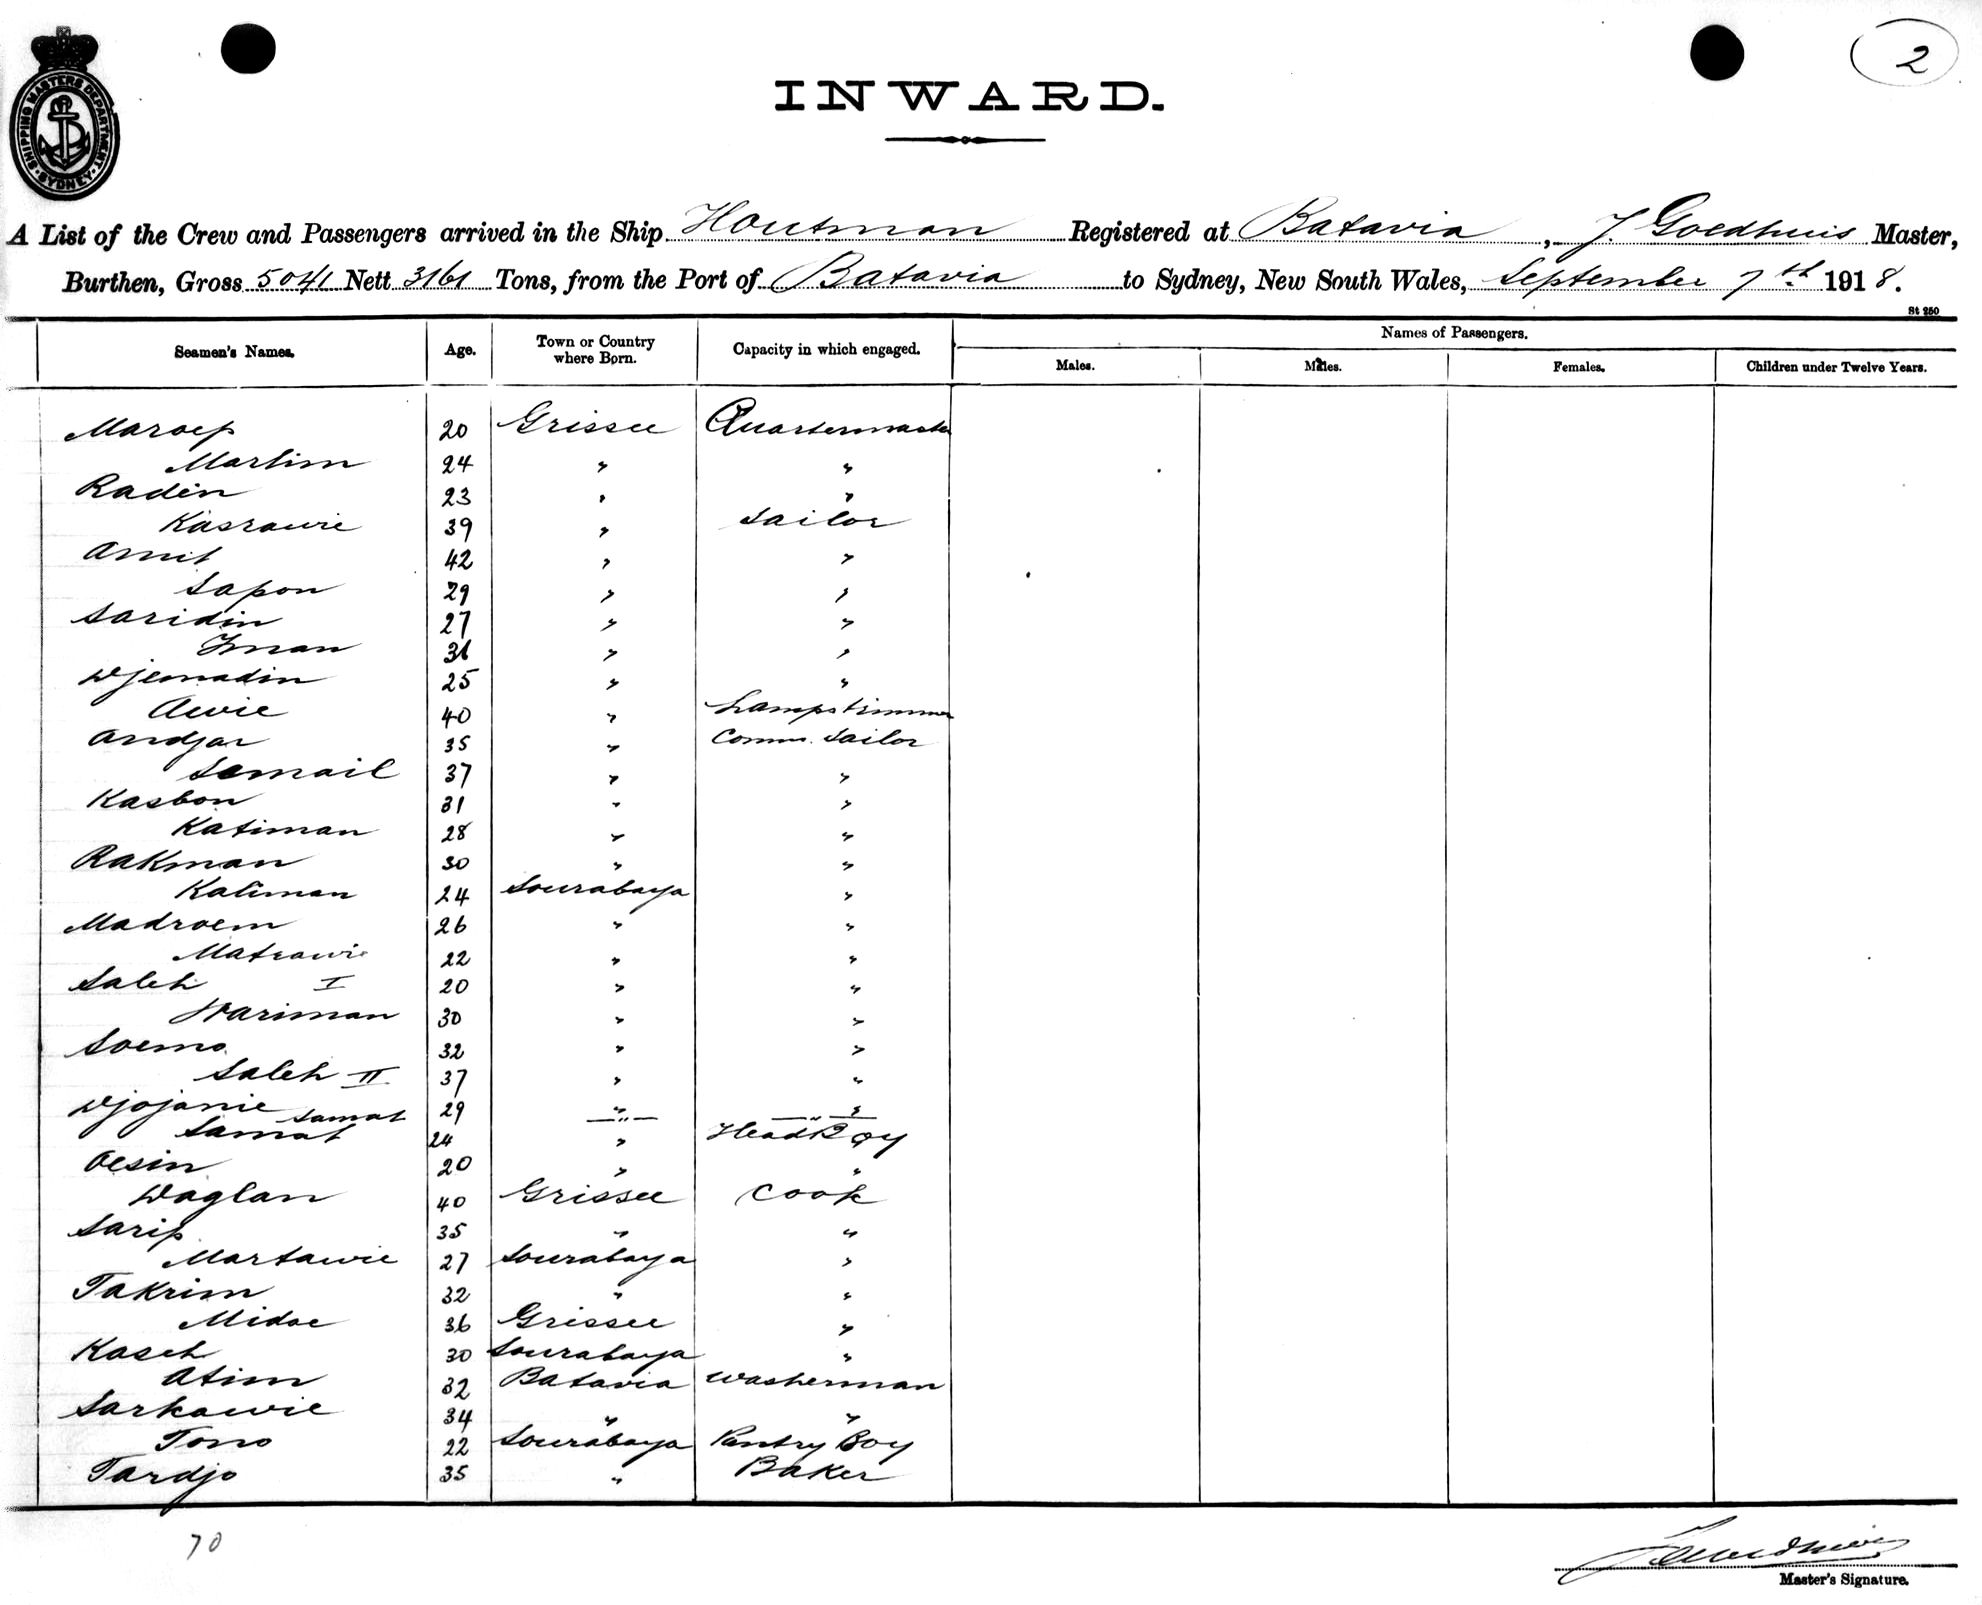 2
SHIPPING MASTERS DEPARTMENT
SYDNEY
INWARD.
A List of the Crew and Passengers arrived in the Ship Houtman Registered at Batavia, J. Goedhuis Master,
Burthen, Gross 5041 Nett 3161 Tons, from the Port of Batavia to Sydney, New South Wales, September 7th 1918.
St 250
Seamen's Names. Age. Town or Country where Born. Capacity in which engaged. Names of Passengers.
Males. Males. Females. Children under Twelve Years.
Maroep 20 Grissee Quartermaster
Martim 24 " "
Radin 23 " "
Kasrawie 39 " Sailor
Amit 42 " "
Sapon 29 " "
Saridin 27 " "
Iman 31 " "
Djemadin 25 " "
Awie 40 " Lampstrimmer
Andjar 35 " Comm. Sailor
Samail 37 " "
Kasbon 31 " "
Katiman 28 " "
Rakman 30 " "
Kaliman 24 Sourabaya "
Madroem 26 " "
Matrawie 22 " "
Saleh I 20 " "
Wariman 30 " "
Soemo 32 " "
Saleh II 37 " "
Djojanie 29 " "
Samat — " — — " —
Samat 24 " Head Boy
Oesin 20 " "
Waglan 40 Grissee Cook
Sarip 35 " "
Martawie 27 Sourabaya "
Takrim 32 " "
Midoe 36 Grissee "
Kaseh 30 Sourabaya "
Atim 32 Batavia Washerman
Sarkawie 34 " "
Tono 22 Sourabaya Pantry Boy
Tardjo 35 " Baker
70
J. Goedhuis
Master's Signature.